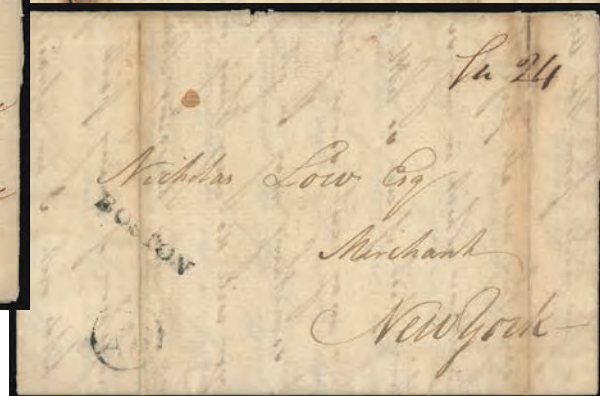 24
Nicholas Low Esq
BOSTON
Merchant
New York